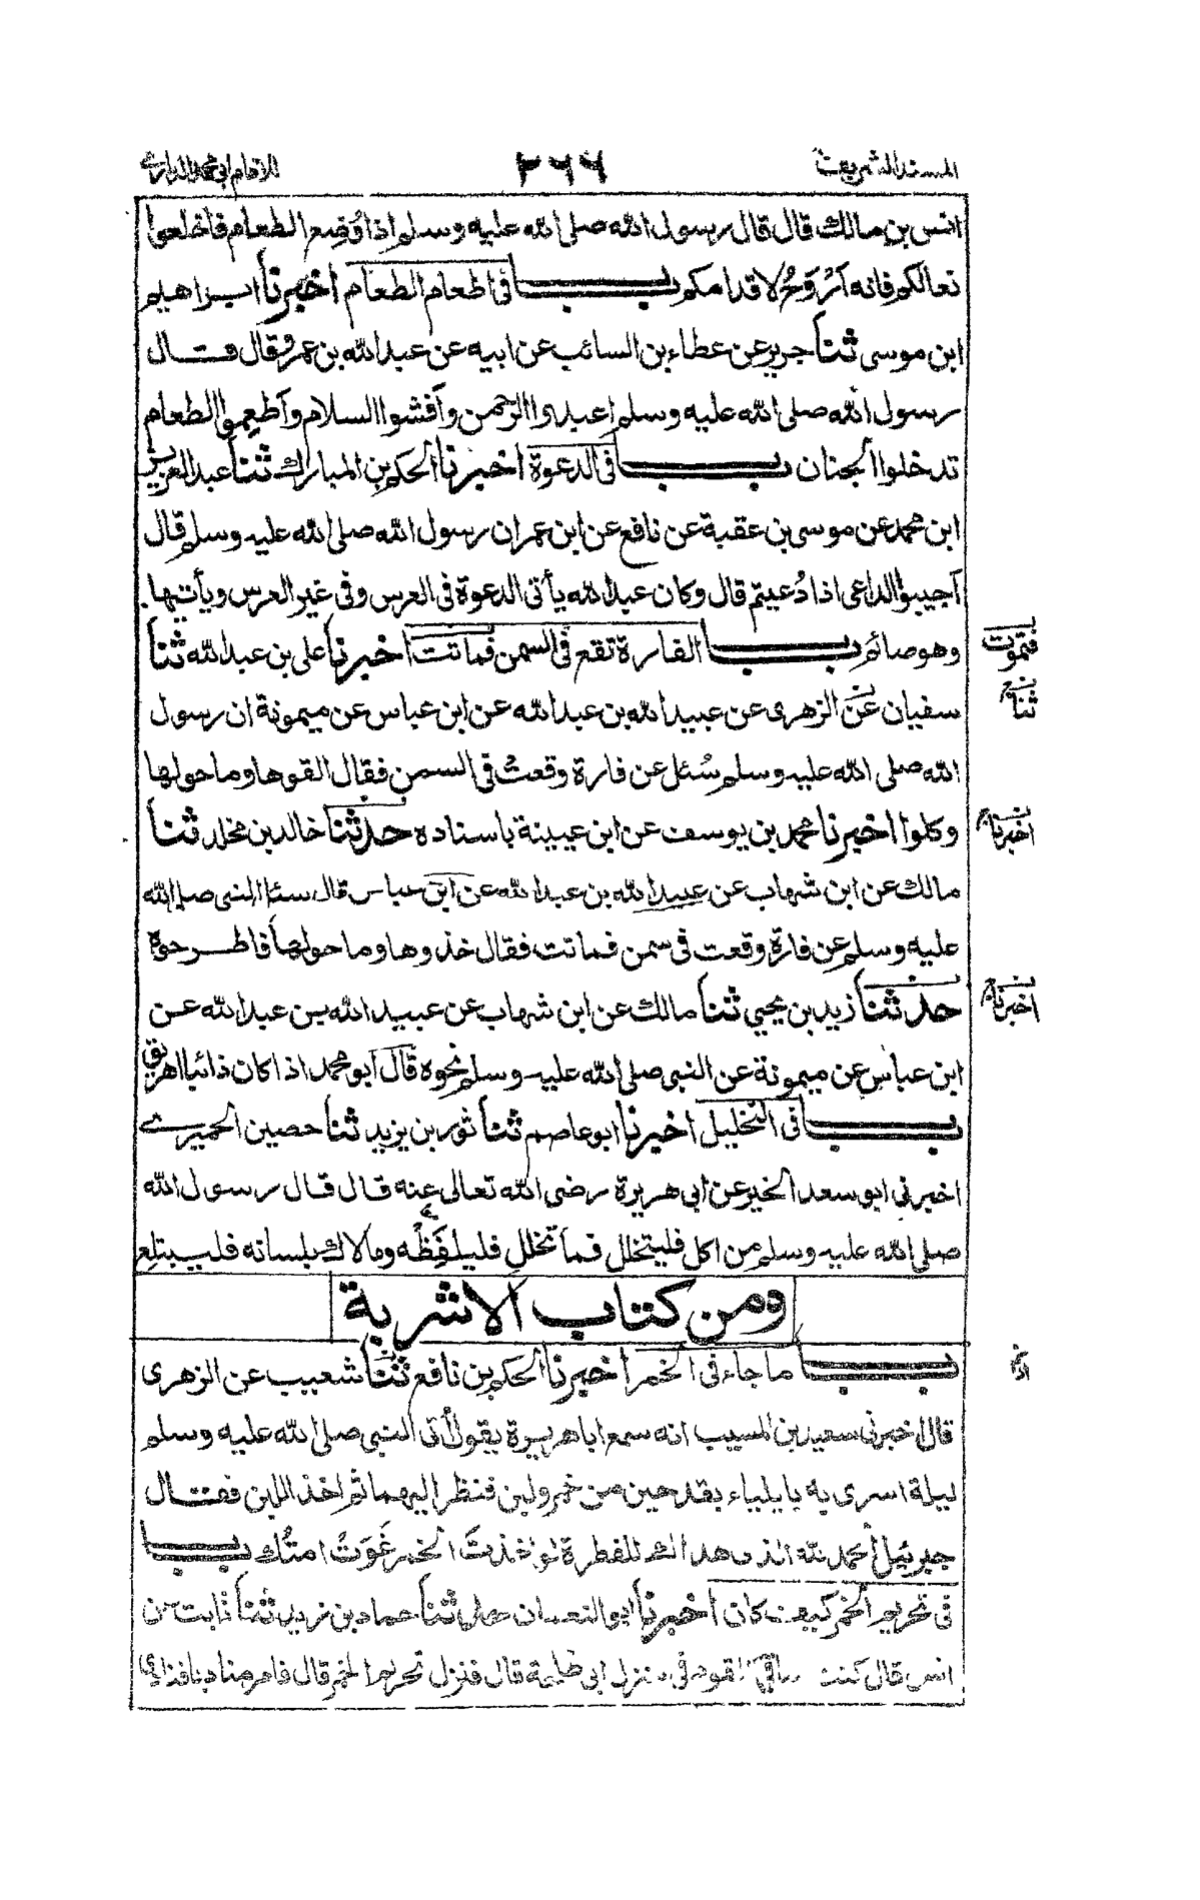 المسند الشريف ٢٦٦ للامام ابي محمد الدارمي
انس بن مالك قال قال رسول الله صلى الله عليه وسلم اذا وُضِع الطعام فاخلعوا
نعالكم فانه اَرْوَحُ لاقدامكم باب في اطعام الطعام اخبرنا ابراهيم
ابن موسى ثنا جرير عن عطاء بن السائب عن ابيه عن عبد الله بن عمرو قال قال
رسول الله صلى الله عليه وسلم اعبدوا الرحمن وأفشوا السلام وأطعِموا الطعام
تدخلوا الجنان باب في الدعوة اخبرنا الحكم بن المبارك ثنا عبد العزيز
ابن محمد عن موسى بن عقبة عن نافع عن ابن عمر ان رسول الله صلى الله عليه وسلم قال
أجيبوا الداعي اذا دُعيتم قال وكان عبد الله يأتي الدعوة في العرس وفي غير العرس ويأتيها
وهو صائم باب الفارة تقع في السمن فماتت اخبرنا علي بن عبد الله ثنا
فتموت
سفيان عن الزهري عن عبيد الله بن عبد الله عن ابن عباس عن ميمونة ان رسول
ثنا
الله صلى الله عليه وسلم سُئل عن فارة وقعت في السمن فقال القوها وما حولها
وكلوا اخبرنا محمد بن يوسف عن ابن عيينة باسناده حدثنا خالد بن مخلد ثنا
اخبرنا
مالك عن ابن شهاب عن عبيد الله بن عبد الله عن ابن عباس قال سئل النبي صلى الله
عليه وسلم عن فارة وقعت في سمن فماتت فقال خذوها وما حولها فاطرحوه
حدثنا زيد بن يحيى ثنا مالك عن ابن شهاب عن عبيد الله بن عبد الله عن
اخبرنا
ابن عباس عن ميمونة عن النبي صلى الله عليه وسلم نحوه قال ابو محمد اذا كان ذائبا اهريق
باب في التخليل اخبرنا ابو عاصم ثنا ثور بن يزيد ثنا حصين الحميري
اخبرني ابو سعد الخير عن ابي هريرة رضى الله تعالى عنه قال قال رسول الله
صلى الله عليه وسلم من اكل فليتخلل فما تخلل فليلفَظْه وما لاك بلسانه فليبتلع
ومن كتاب الاشربة
باب ما جاء في الخمر اخبرنا الحكم بن نافع ثنا شعيب عن الزهري
قال اخبرني سعيد بن المسيب انه سمع ابا هريرة يقول أتى النبي صلى الله عليه وسلم
ليلة اسرى به بايلياء بقدحين من خمر ولبن فنظر اليهما ثم اخذ اللبن فقال
جبرئيل الحمد لله الذي هداك للفطرة لو اخذتَ الخمر غَوَتْ امتُك باب
في تحريم الخمر كيف كان اخبرنا ابو النعمان ثنا حماد بن زيد ثنا ثابت عن
انس قال كنت ساقي القوم في منزل ابي طلحة قال فنزل تحريم الخمر قال فامر مناديا فنادى